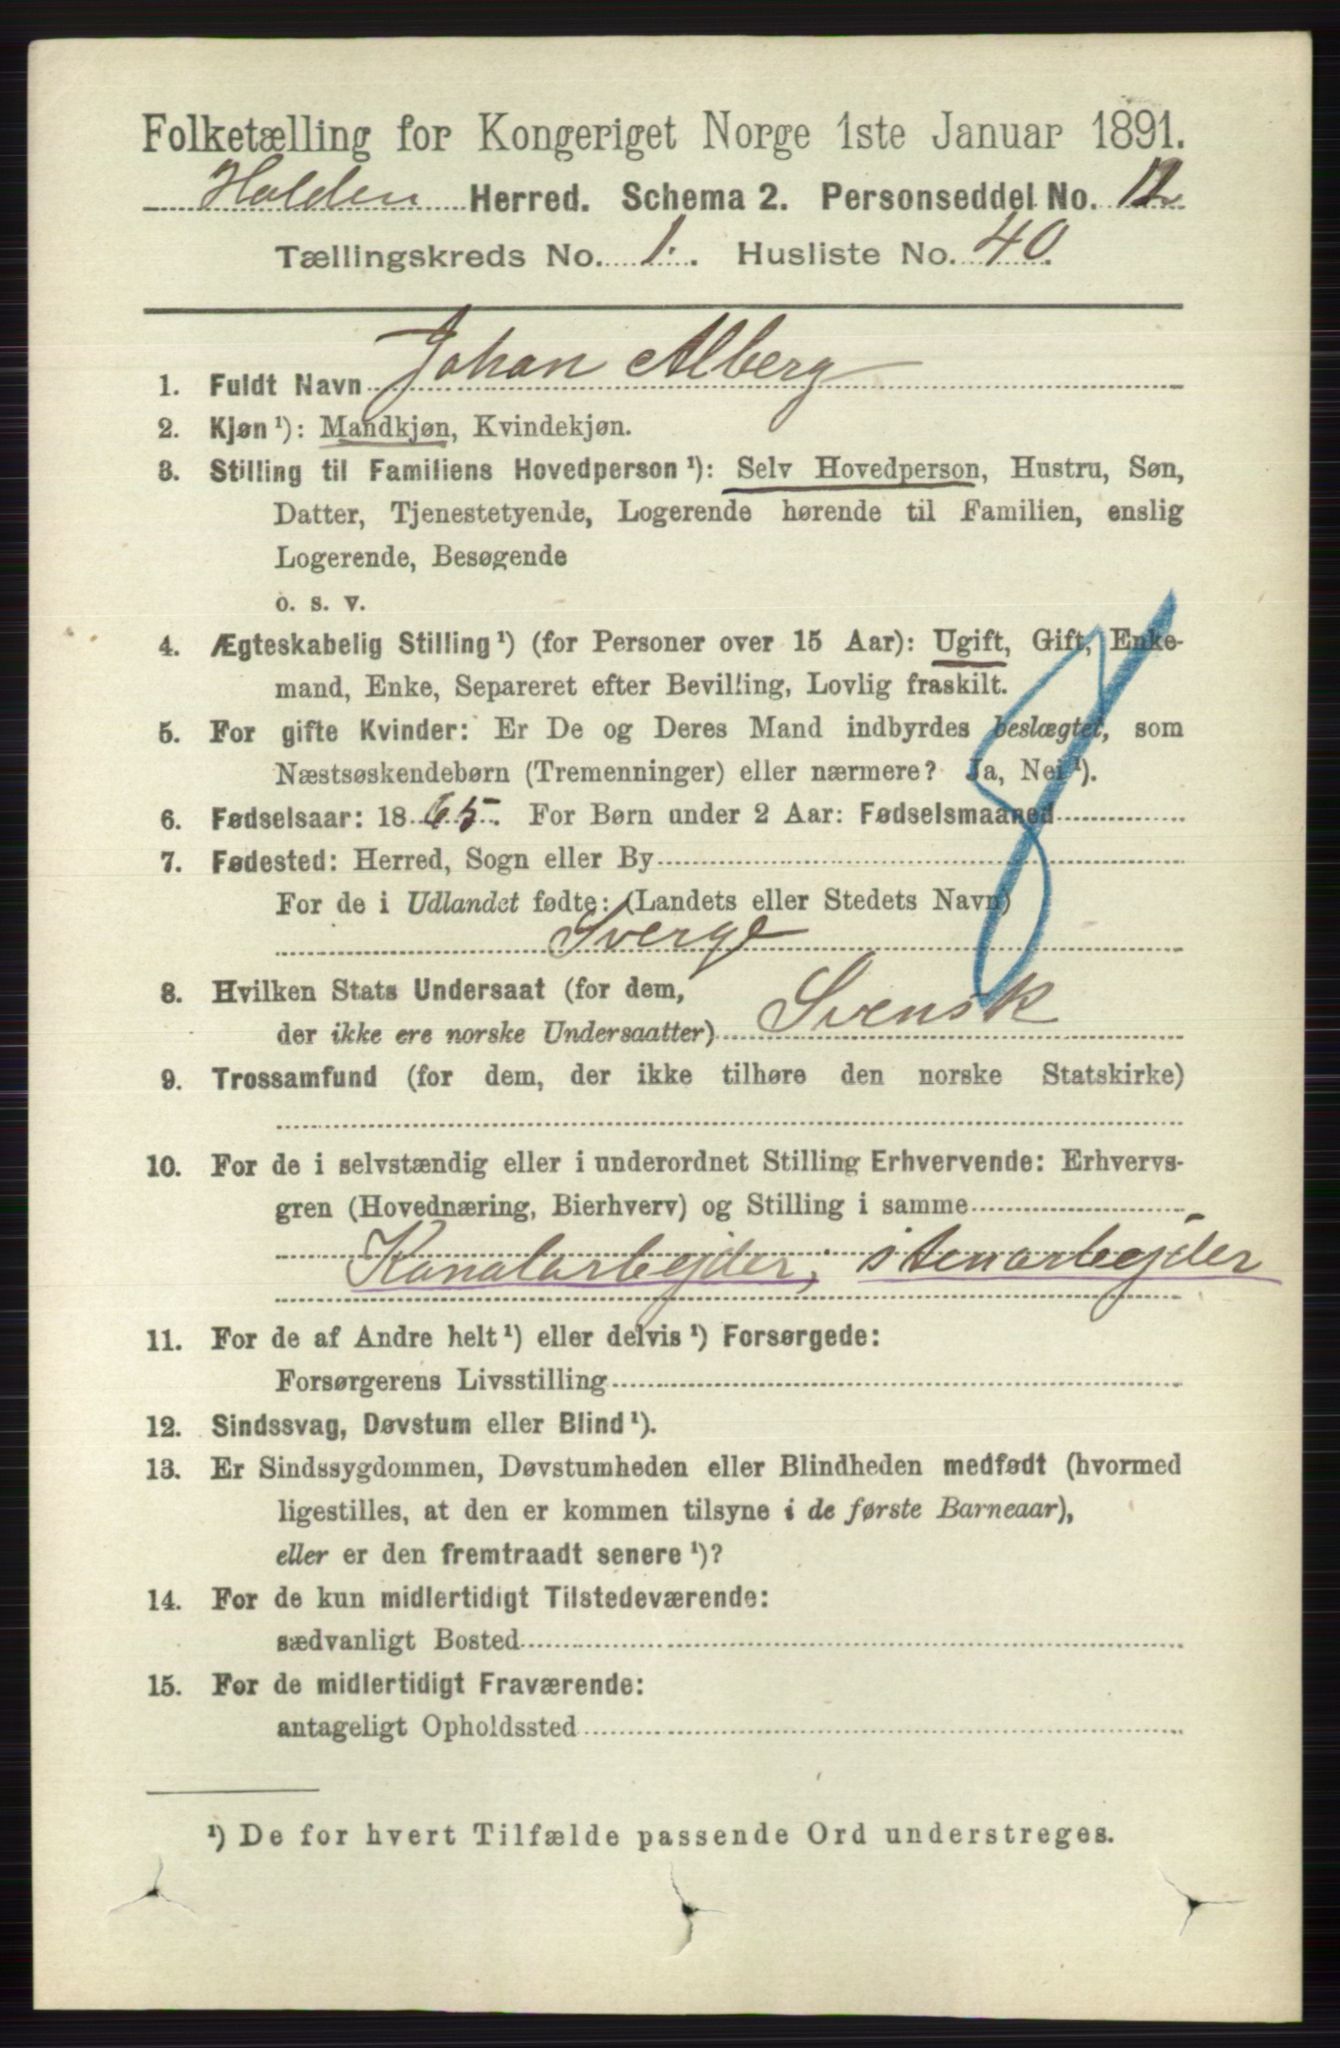 Folketælling for Kongeriget Norge 1ste Januar 1891.
Holden Herred. Schema 2. Personseddel No. 12
Tællingskreds No. 1. Husliste No. 40.
1. Fuldt Navn Johan Alberg
2. Kjøn¹): Mandkjøn, Kvindekjøn.
3. Stilling til Familiens Hovedperson¹): Selv Hovedperson, Hustru, Søn,
Datter, Tjenestetyende, Logerende hørende til Familien, enslig
Logerende, Besøgende
o. s. v.
4. Ægteskabelig Stilling¹) (for Personer over 15 Aar): Ugift, Gift, Enke-
mand, Enke, Separeret efter Bevilling, Lovlig fraskilt.
5. For gifte Kvinder: Er De og Deres Mand indbyrdes beslægtet, som
Næstsøskendebørn (Tremenninger) eller nærmere? Ja, Nei¹).
6. Fødselsaar: 1865. For Børn under 2 Aar: Fødselsmaaned
7. Fødested: Herred, Sogn eller By
For de i Udlandet fødte: (Landets eller Stedets Navn)
Sverge
8. Hvilken Stats Undersaat (for dem,
der ikke ere norske Undersaatter) Svensk
9. Trossamfund (for dem, der ikke tilhøre den norske Statskirke)
10. For de i selvstændig eller i underordnet Stilling Erhvervende: Erhvervs-
gren (Hovednæring, Bierhverv) og Stilling i samme
Kanalarbejder, stenarbejder
11. For de af Andre helt¹) eller delvis¹) Forsørgede:
Forsørgerens Livsstilling
12. Sindssvag, Døvstum eller Blind¹).
13. Er Sindssygdommen, Døvstumheden eller Blindheden medfødt (hvormed
ligestilles, at den er kommen tilsyne i de første Barneaar),
eller er den fremtraadt senere¹)?
14. For de kun midlertidigt Tilstedeværende:
sædvanligt Bosted
15. For de midlertidigt Fraværende:
antageligt Opholdssted
¹) De for hvert Tilfælde passende Ord understreges.